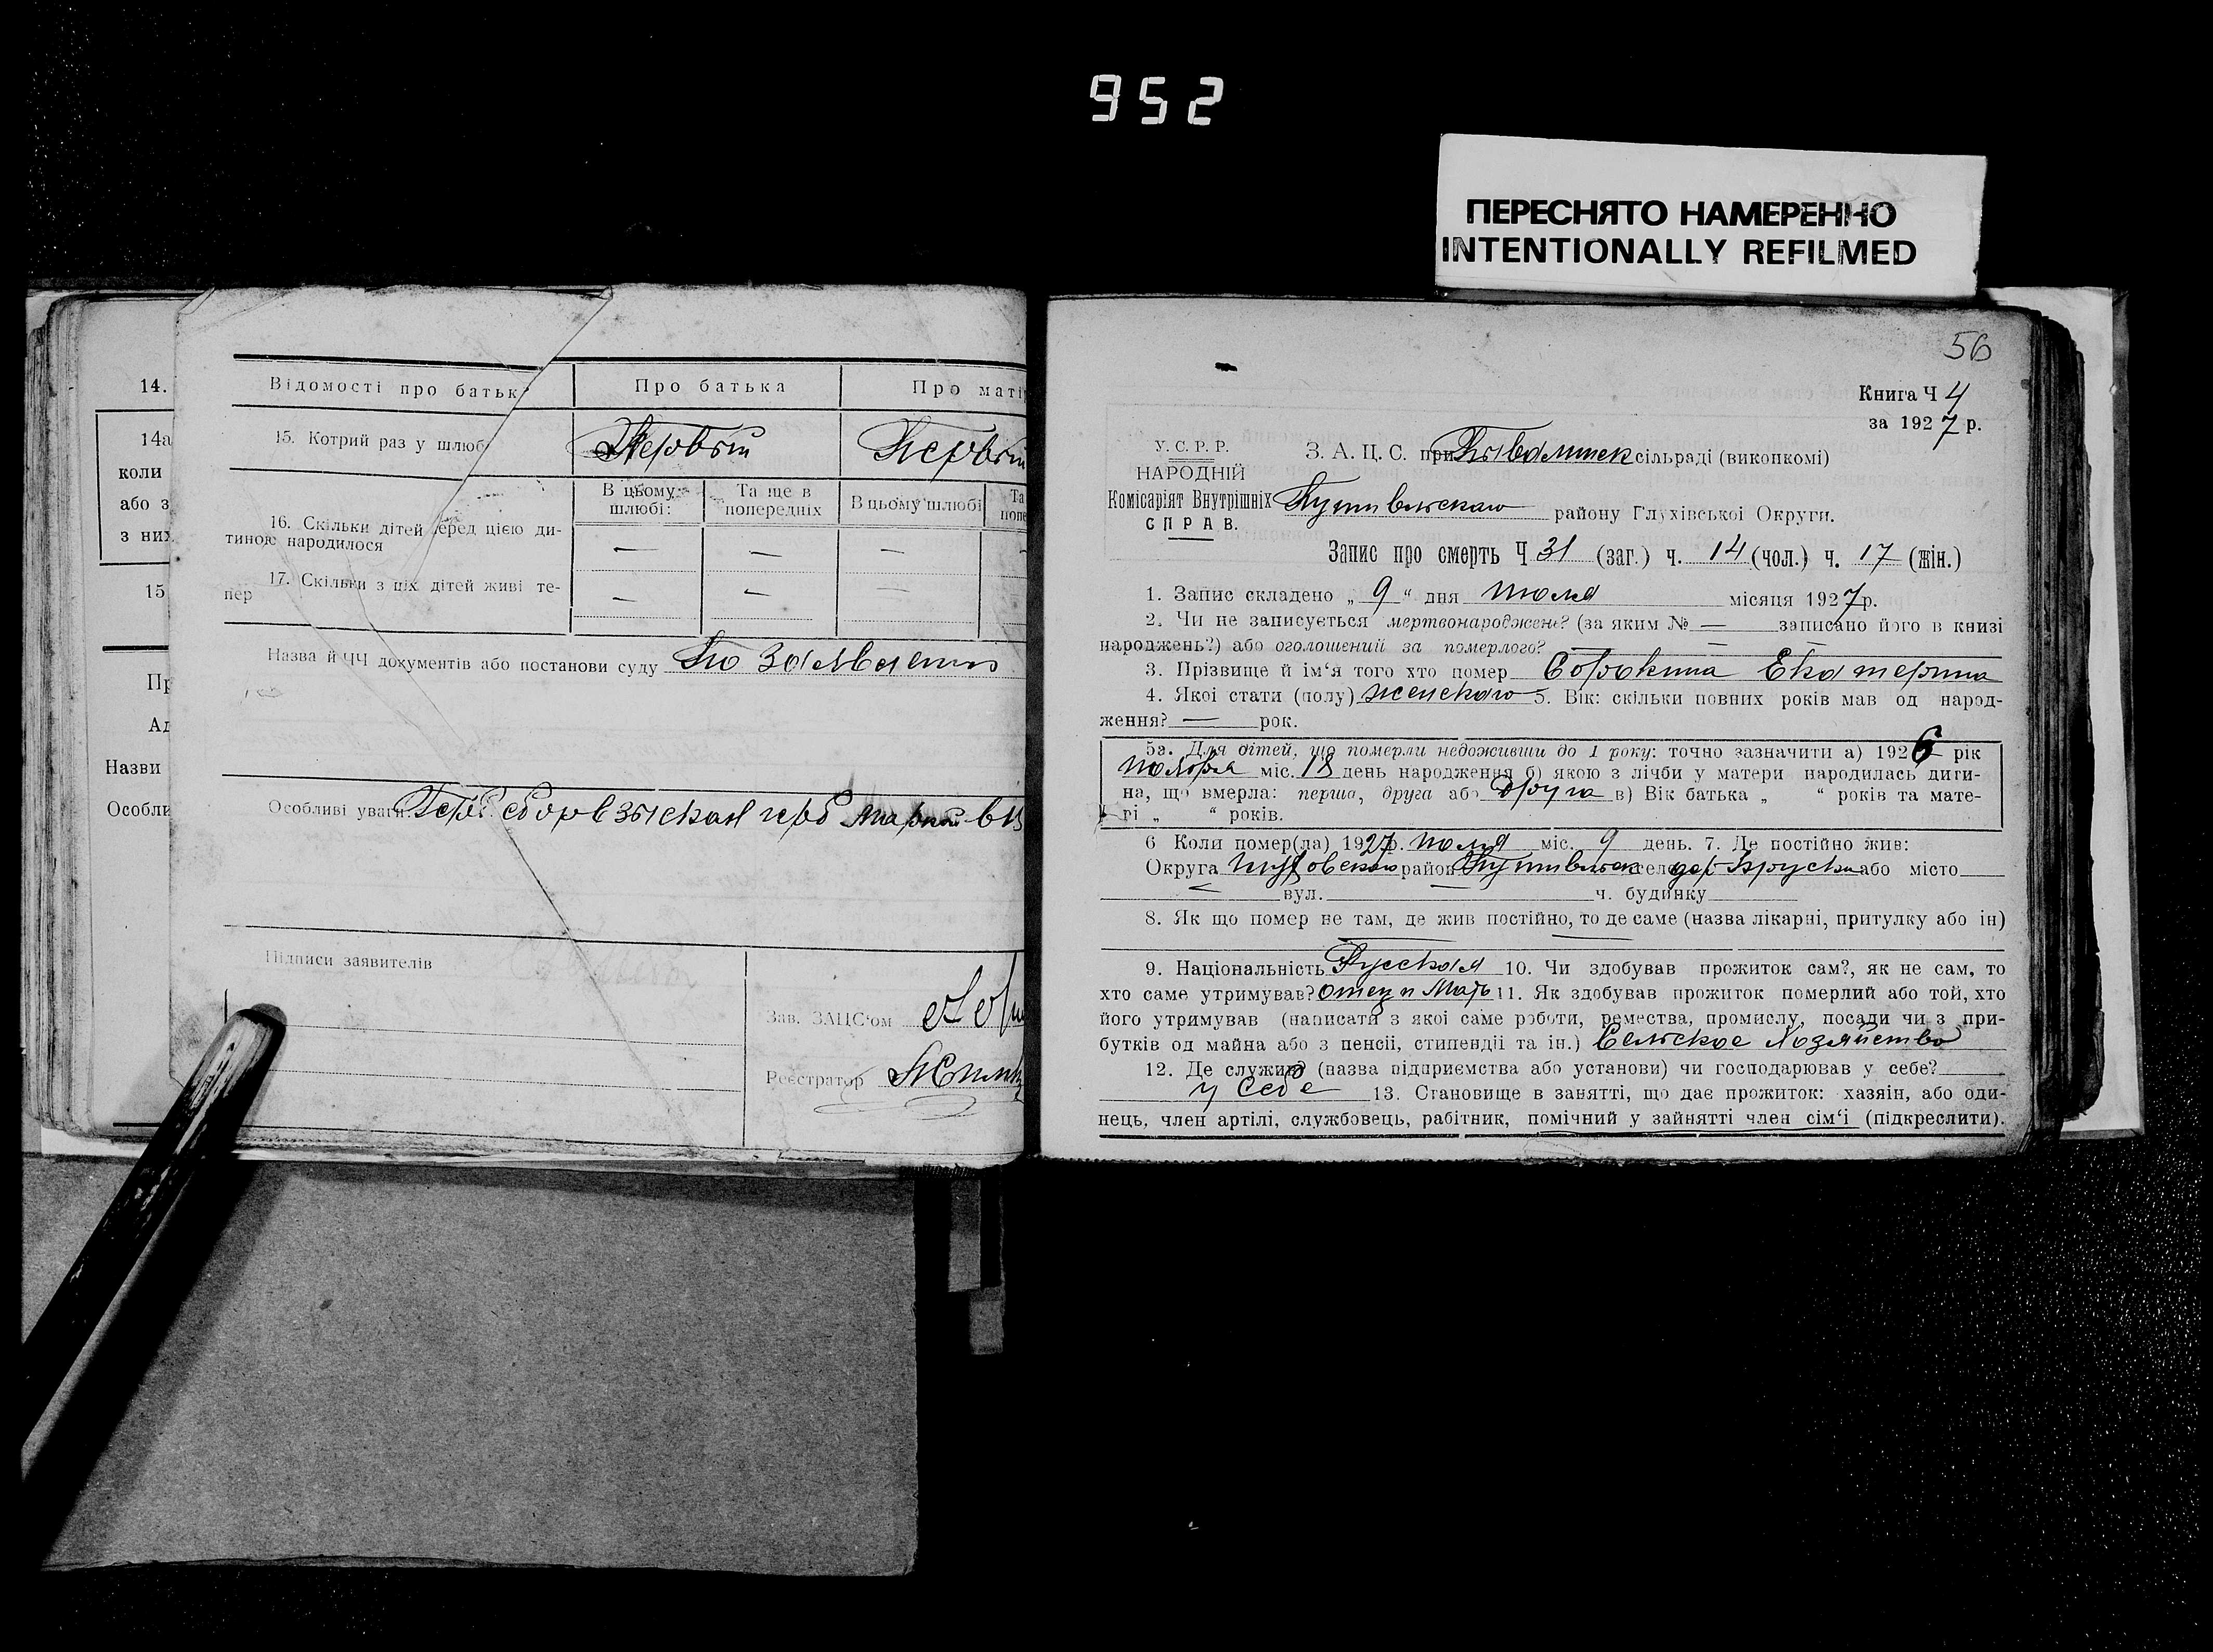 952
ПЕРЕСНЯТО НАМЕРЕННО
INTENTIONALLY REFILMED
14.
14а
коли
або з
з них
15
Пр
Ад
Назви
Особли
Відомості про батьк
Про батька
Про маті
15. Котрий раз у шлюб
Первый
Первый
В цьому шлюбі:
Та ще в попередніх
В цьому шлюбі
Та
попе
16. Скільки дітей перед цією ди-
тиною народилося
— — —
17. Скільки з ціх дітей живі те-
пер
— — —
Назва й ЧЧ документів або постанови суду По Заявлению
Особливі уваги: Герб. сбор взыскан герб маркой в
Підписи заявителів
Зав. ЗАЦС‘ом
Реєстратор
56
Книга Ч 4
за 1927 р.
У. С. Р. Р.
НАРОДНІЙ
Комісаріят Внутрішніх
СПРАВ.
З. А. Ц. С. при сільраді (викопкомі)
Путивльскаго району Глухівської Округи.
Запис про смерть Ч 31 (заг.) ч. 14 (чол.) ч. 17 (жін.)
1. Запис складено „ 9 “ дня Июля місяця 1927 р.
2. Чи не записується мертвонароджень? (за яким № — записано його в книзі
народжень?) або оголошений за померлого? —
3. Прізвище й ім‘я того хто помер Сорокина Екатерина
4. Якої стати (полу) женскаго 5. Вік: скільки повних років мав од народ-
ження? — рок.
5а. Для дітей, що померли недоживши до 1 року: точно зазначити а) 1926 рік
міс. 18 день народження б) якою з лічби у матери народилась дити-
на, що вмерла: перша, друга або друга в) Вік батька „ “ років та мате-
рі „ “ років.
6 Коли помер(ла) 1927 р. Июля міс. 9 день. 7. Де постійно жив:
Округа район Путивльск село дер. або місто
— вул. — ч. будинку
8. Як що помер не там, де жив постійно, то де саме (назва лікарні, притулку або ін)
—
9. Національність Русская 10. Чи здобував прожиток сам?, як не сам, то
хто саме утримував? отец и Мать 11. Як здобував прожиток померлий або той, хто
його утримував (написати з якої саме роботи, ремества, промислу, посади чи з при-
бутків од майна або з пенсії, стипендії та ін.) Сельское Хозяйство
12. Де служив (назва підприємства або установи) чи господарював у себе?
у Себе 13. Становище в занятті, що дає прожиток: хазяїн, або оди-
нець, член артілі, службовець, рабітник, помічний у зайнятті член сім‘ї (підкреслити).